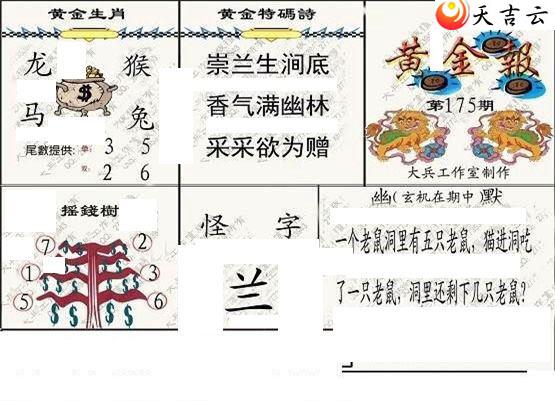 黄金生肖
龙 猴
马 兔
尾數提供: 单: 3 5
双: 2 6
黄金特碼詩
崇兰生涧底
香气满幽林
采采欲为赠
天吉云
黄金報
第175期
大兵工作室制作
摇錢樹
7 2
1 3
5 6
怪 字
兰
幽(玄机在期中)默
一个老鼠洞里有五只老鼠,猫进洞吃
了一只老鼠,洞里还剩下几只老鼠?